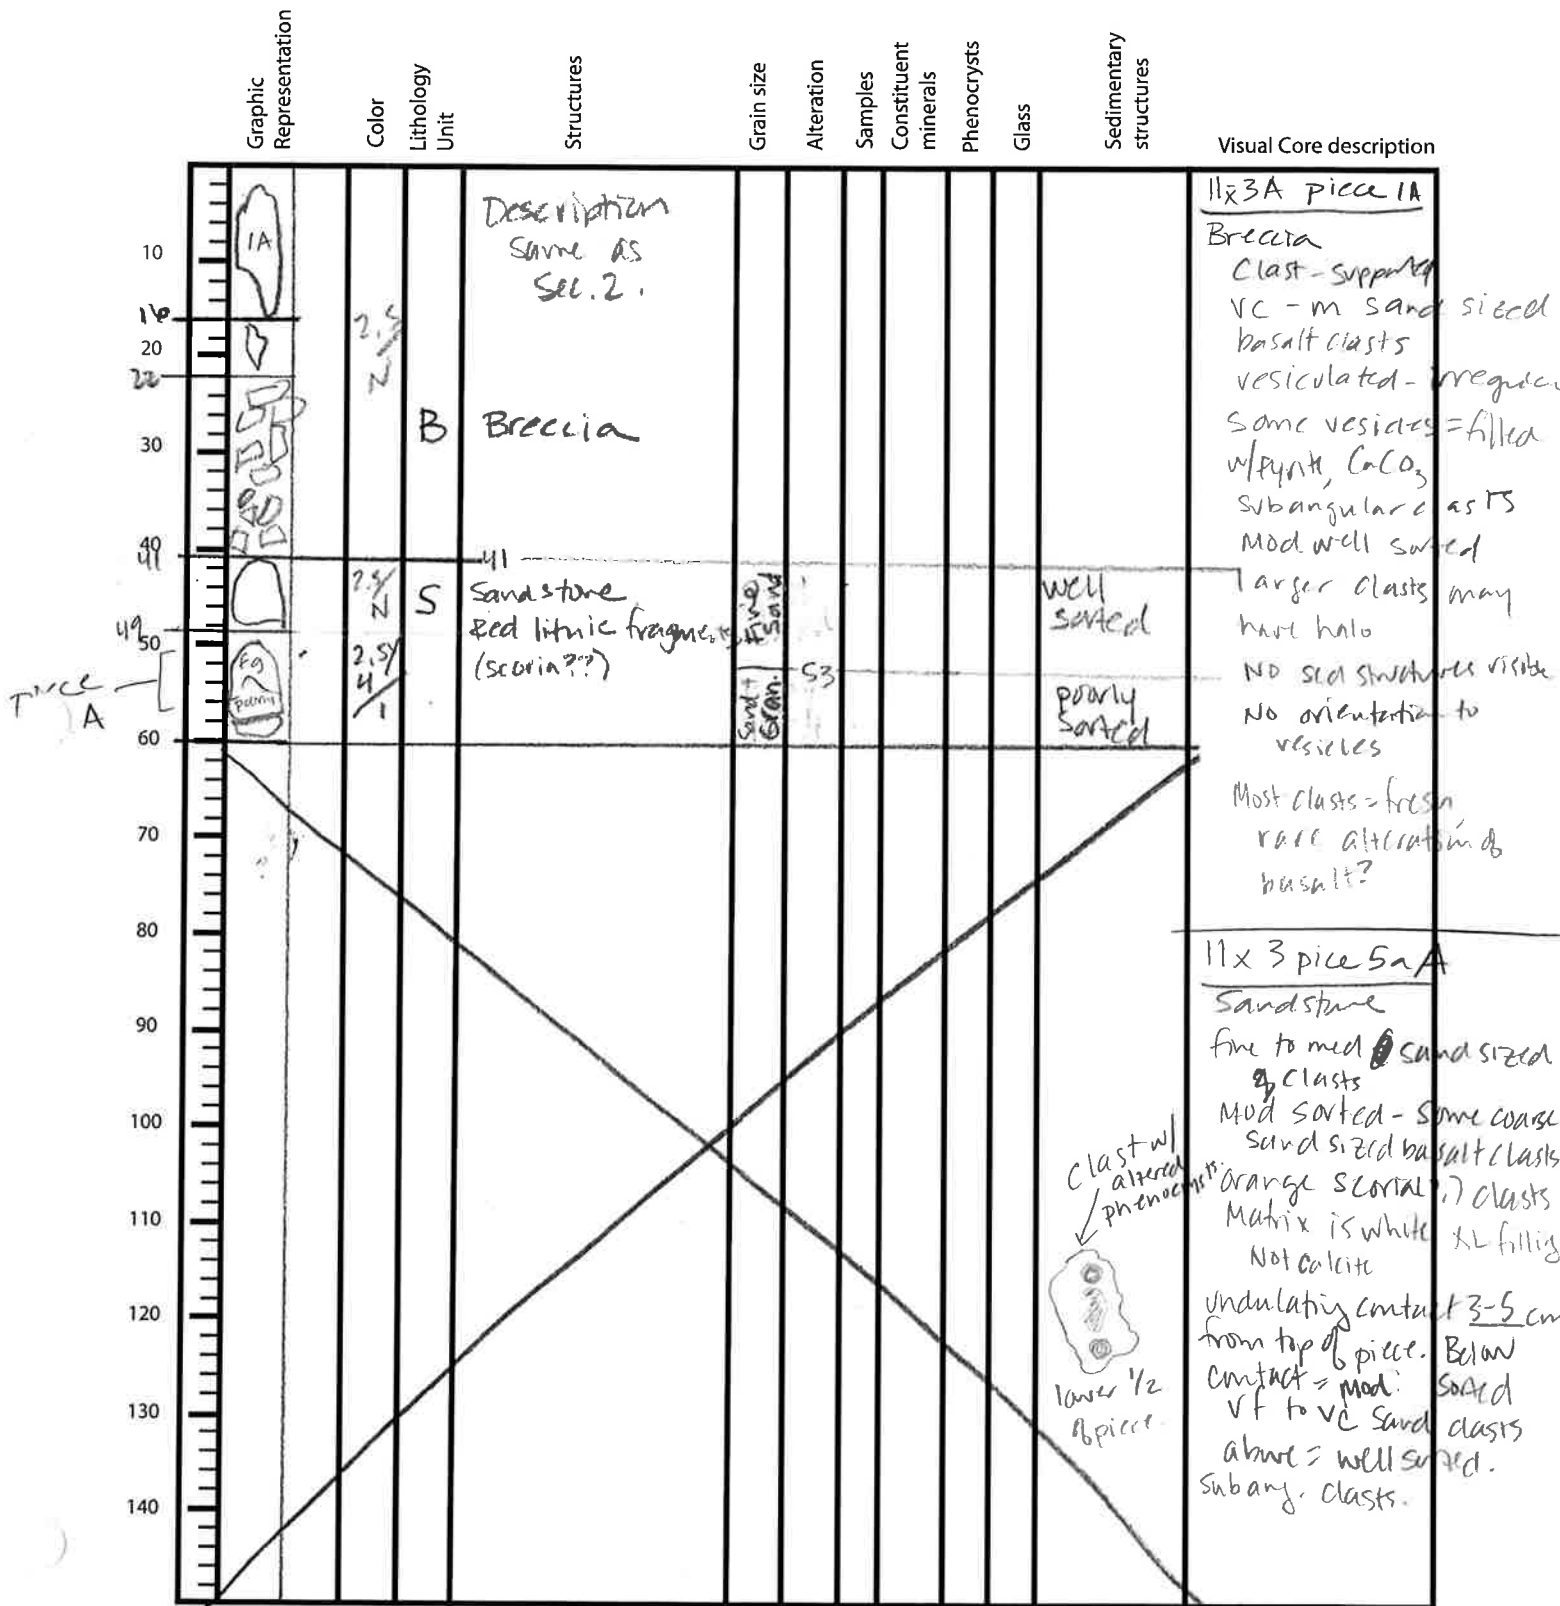 Graphic
Representation
Color
Lithology
Unit
Structures
Grain size
Alteration
Samples
Constituent
minerals
Phenocrysts
Glass
Sedimentary
structures
Visual Core description
10
16
20
22
30
40
41
49
50
60
70
80
90
100
110
120
130
140
1A
Fg
A
2.5/
N
2.5/
N
2.5/
4
1
B
S
Description
same as
Sec. 2.
Breccia
41
Sandstone
Red lithic fragments
(scoria??)
Fine
Sand
53
Sand +
Gran.
well
sorted
poorly
sorted
Clast w/
altered
phenocrysts.
lower 1/2
of piece.
11x3A piece 1A
Breccia
Clast-supported
vc - m sand sized
basalt clasts
vesiculated - irregular
Some vesicles = filled
w/pyrite, CaCO3
subangular clasts
Mod well sorted
larger clasts may
have halo
No sed structures visible
No orientation to
vesicles
Most clasts = fresh,
rare alteration of
basalt?
11x 3 pice 5a A
Sandstone
fine to med sand sized
clasts
Mod sorted - some coarse
sand sized basalt clasts
orange scoria(?) clasts
Matrix is white XL filling
Not calcite
undulating contact 3-5 cm
from top of piece. Below
contact = mod. sorted
vf to vc sand clasts
above = well sorted.
subang. clasts.